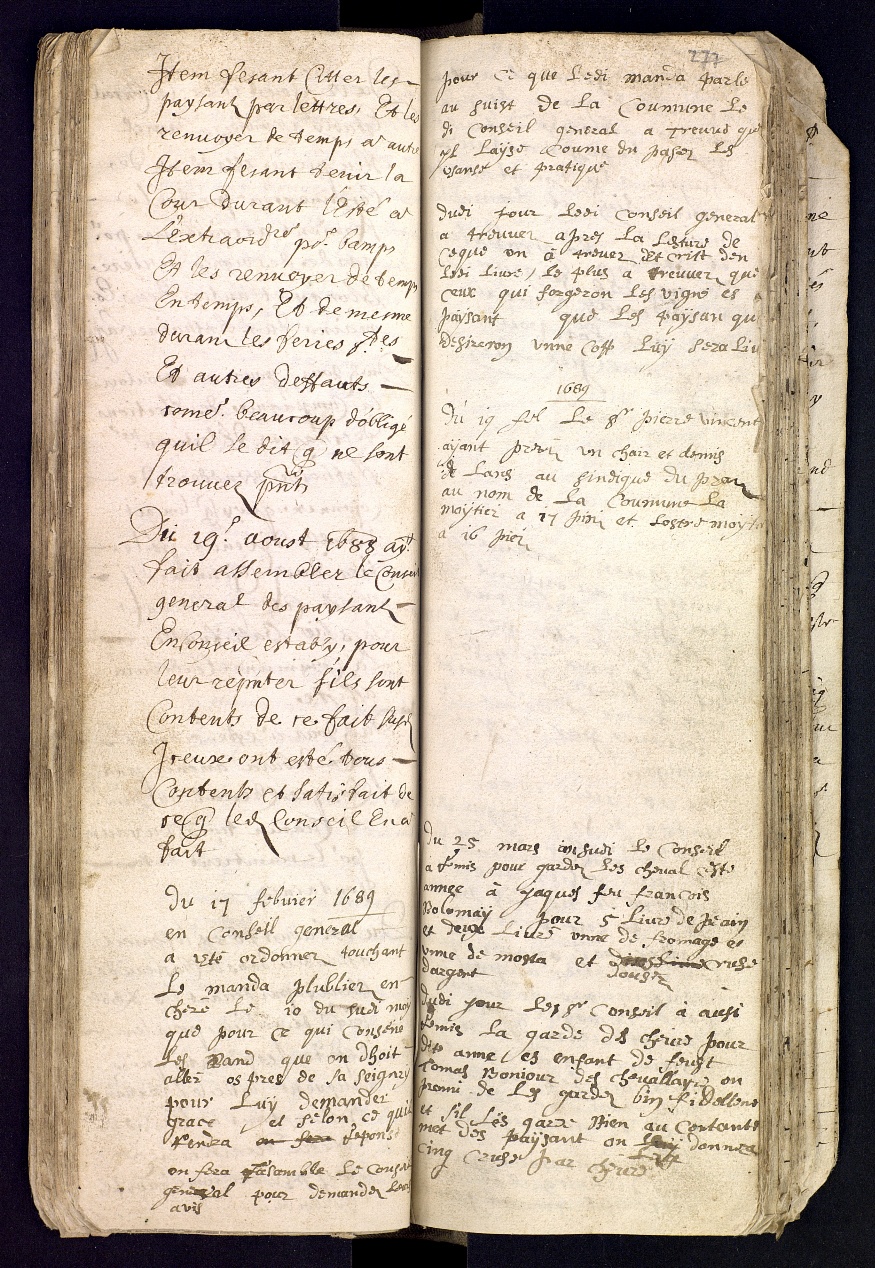 Item fesant Citter les
paysant par lettres, Et les
renvoyer de temps a autre
Item fesant tenir la
Cour durant l'Esté a
L'extraordre por bamps
Et les renvoyer de temps
En temps, Et de mesme
durant les feries
Et autres deffauts
come beaucoup d'obligé
quil se dit q ne sont
trouvez pnts
Du 19e aoust 1688 ayt
fait assembler le Conseil
general des paysant
En Conseil estably, pour
leur sils sont
Contents de ce fait susd
Iceux ont esté tous
Contents et satisfait de
ce q led Conseil En a
fait
Du 17 febvier 1689
en Conseil general
a esté ordonner touchant
Le manda plublier en
chere le 10 du sudi moy
que pour ce qui Conserne
les que on dhoit
aller os pres de sa seigry
pour Luy demander
grace et selon ce quil
fendra repons
on fera rasamble le Conseil
general pour demander leur
avis
277
pour ce que Ledi manda parle
au suist de La Coumune Le
di Conseil general a treuvé que
yl Layse coume du paser les
usanse et pratique
dudi jour Ledi Conseil general
a treuver apres La Lesture de
ceque on à treuer Etcrist den
Ledi Livre, le plus a treuver que
ceux qui forgeron les vigne es
paysant que Les paysan qui
desireron unne Coff Luy sera Liv
1689
du 19 fel Le Sr pierre vincent
ayant un chair et demis
de Lans au sindique du
au nom de La Coumune La
moytier a 17 et Lostre moytie
a 16
du 25 mars ansudi le Conseil
à femis pour garder les cheval este
annee à Jaques feu francois
Bolomay pour 5 Livre de
et deux Livre unne de fromage es
unne de mossa et cruse
dargent douse
dudi jour Les Sr Conseil à ausi
femis La garde des cheure pour
dite anne es enfant de feust
Tomas Bonjour des chevallayre on
promi de Les garder bin fidellene
et sil Les garde bien au Contante
met des paysant on donnera
cinq cruse par cheure